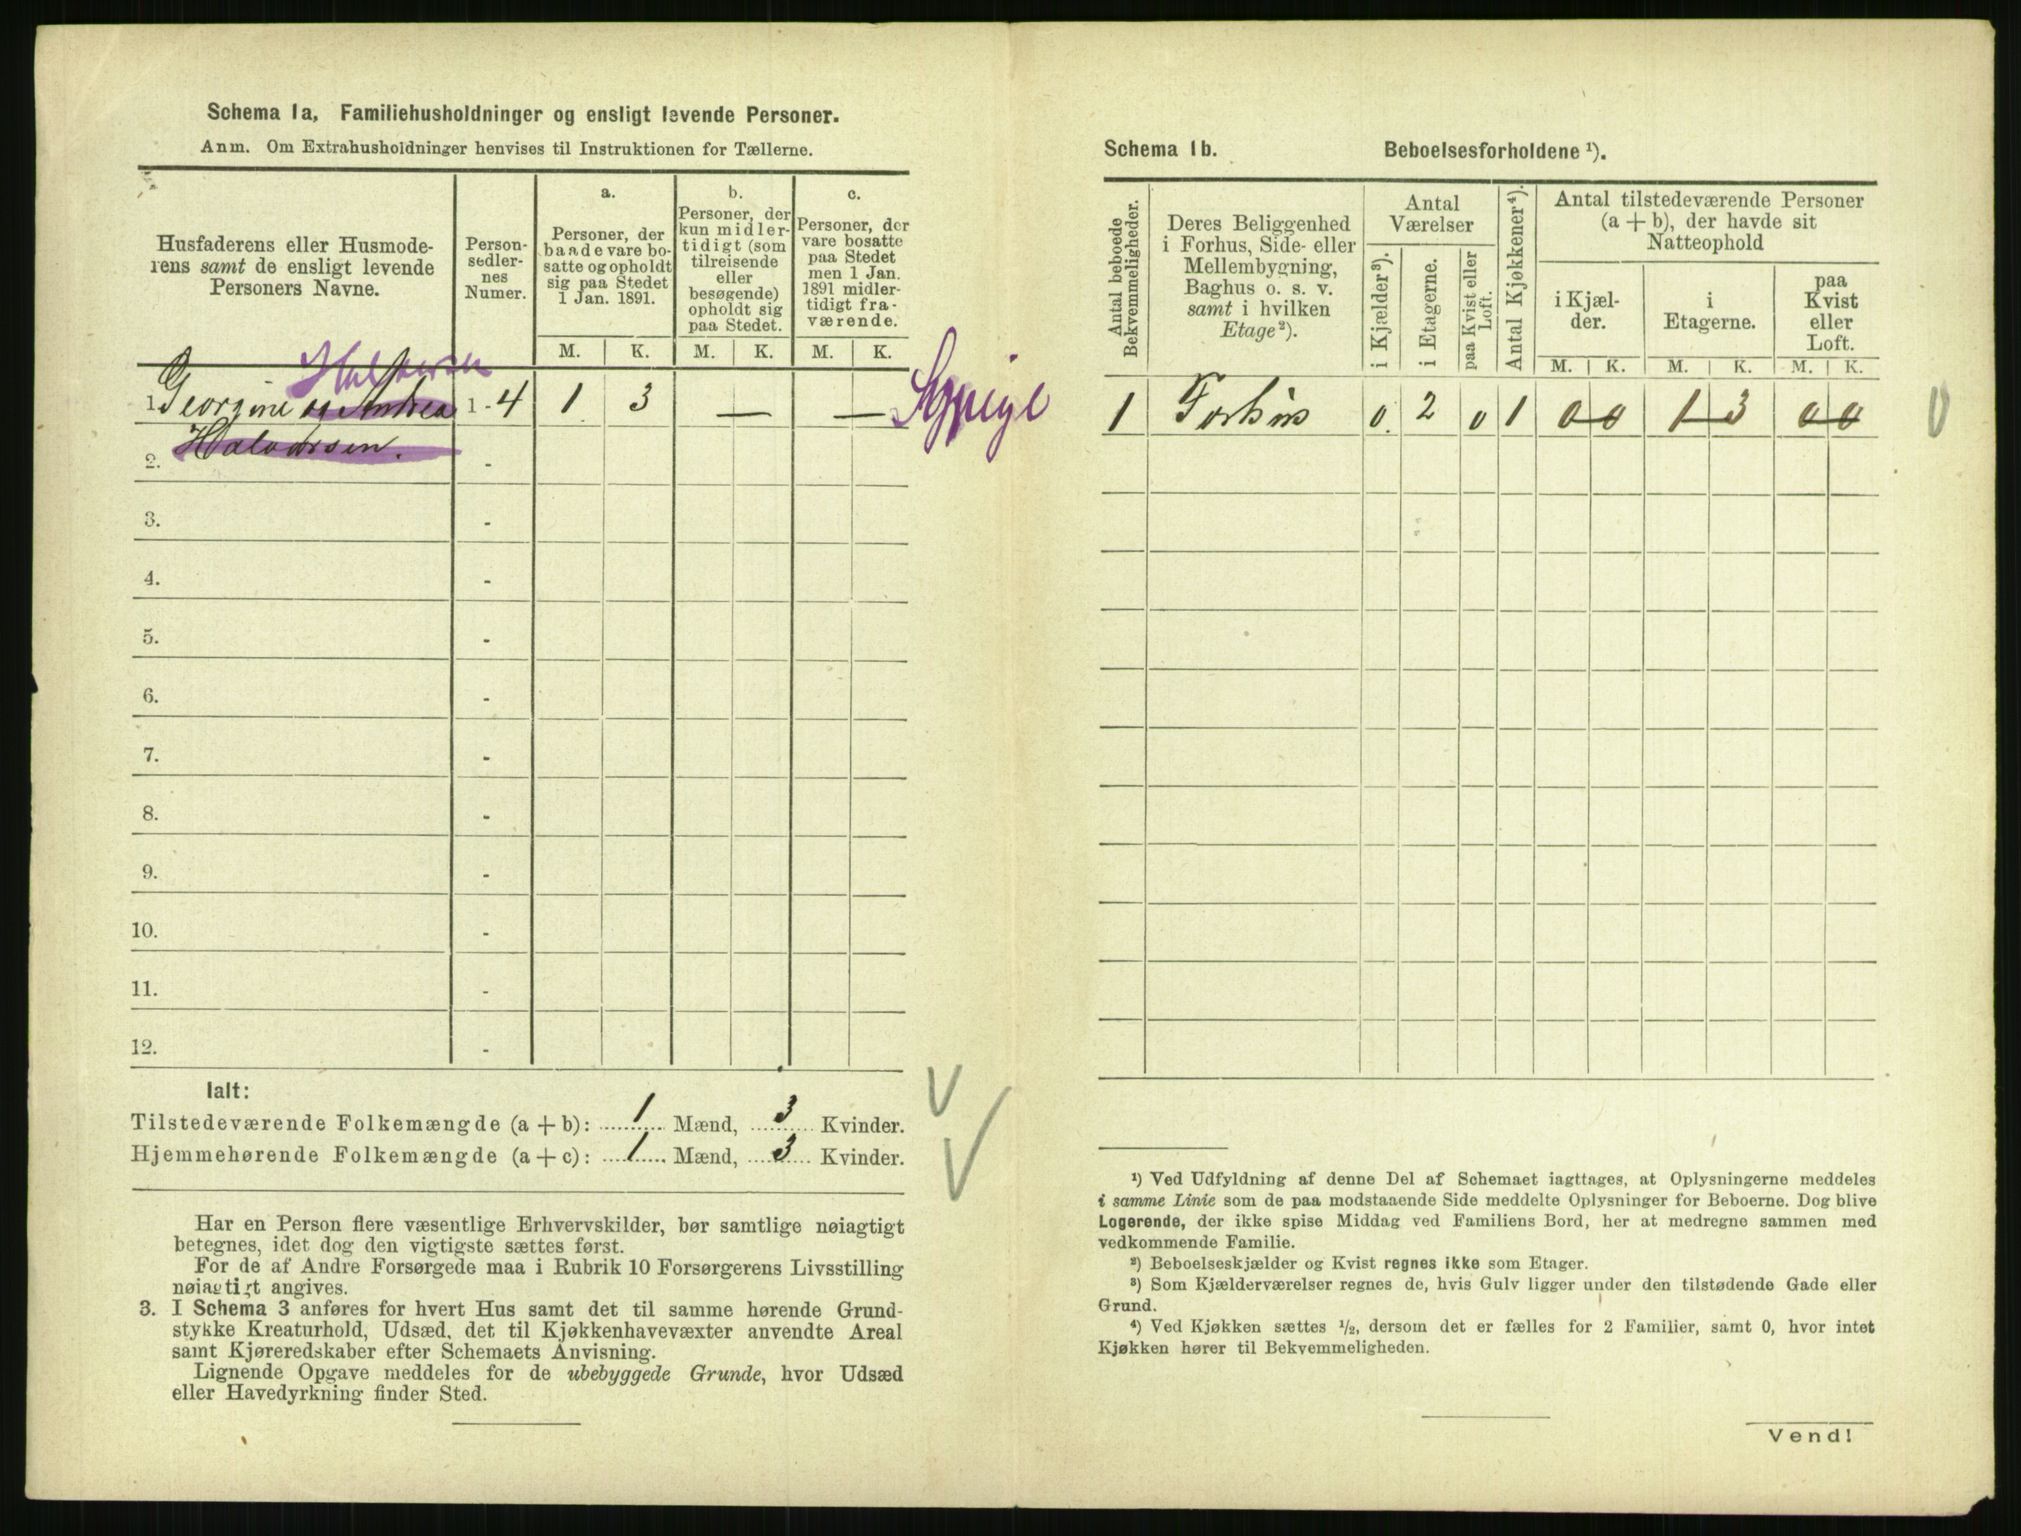 Schema 1a, Familiehusholdninger og ensligt levende Personer.
Anm. Om Extrahusholdninger henvises til Instruktionen for Tællerne.
Husfaderens eller Husmoderens samt de ensligt levende Personers Navne.
Personsedlernes Numer.
a.
Personer, der baade vare bosatte og opholdt sig paa Stedet 1 Jan. 1891.
b.
Personer, der kun midlertidigt (som tilreisende eller besøgende) opholdt sig paa Stedet.
c.
Personer, der vare bosatte paa Stedet men 1 Jan. 1891 midlertidigt fraværende.
M. K. M. K. M. K.
1. Georgine og Andrea 1 - 4 1 3 — —
2. Halvorsen. -
3. -
4. -
5. -
6. -
7. -
8. -
9. -
10. -
11. -
12. -
Ialt:
Tilstedeværende Folkemængde (a + b): 1 Mænd, 3 Kvinder.
Hjemmehørende Folkemængde (a + c): 1 Mænd, 3 Kvinder.
Har en Person flere væsentlige Erhvervskilder, bør samtlige nøiagtigt
betegnes, idet dog den vigtigste sættes først.
For de af Andre Forsørgede maa i Rubrik 10 Forsørgerens Livsstilling
nøiagtigt angives.
3. I Schema 3 anføres for hvert Hus samt det til samme hørende Grund-
stykke Kreaturhold, Udsæd, det til Kjøkkenhavevæxter anvendte Areal
samt Kjøreredskaber efter Schemaets Anvisning.
Lignende Opgave meddeles for de ubebyggede Grunde, hvor Udsæd
eller Havedyrkning finder Sted.
Schema 1b. Beboelsesforholdene ¹).
Antal beboede Bekvemmeligheder.
Deres Beliggenhed i Forhus, Side- eller Mellembygning, Baghus o. s. v. samt i hvilken Etage ²).
Antal Værelser
i Kjælder ³).
i Etagerne.
paa Kvist eller Loft.
Antal Kjøkkener ⁴).
Antal tilstedeværende Personer (a + b), der havde sit Natteophold
i Kjælder.
i Etagerne.
paa Kvist eller Loft.
M. K. M. K. M. K.
1 Forhus 0 2 0 1 0 0 1 3 0 0
¹) Ved Udfyldning af denne Del af Schemaet iagttages, at Oplysningerne meddeles
i samme Linie som de paa modstaaende Side meddelte Oplysninger for Beboerne. Dog blive
Logerende, der ikke spise Middag ved Familiens Bord, her at medregne sammen med
vedkommende Familie.
²) Beboelseskjælder og Kvist regnes ikke som Etager.
³) Som Kjælderværelser regnes de, hvis Gulv ligger under den tilstødende Gade eller
Grund.
⁴) Ved Kjøkken sættes ½, dersom det er fælles for 2 Familier, samt 0, hvor intet
Kjøkken hører til Bekvemmeligheden.
Vend!